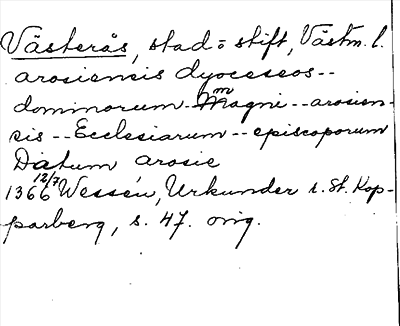 Västerås, stad o stift, Västm. l.
arosiensis dyoceseos--
dominorum - Magni -- arosien-
sis -- Ecclesiarum -- episcoporum
Datum arosie
1366 12/7 Wessén, Urkunder r. St. Kop-
parberg, s. 47. orig.